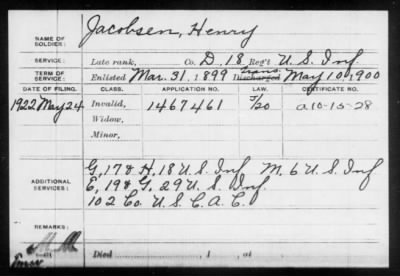 NAME OF SOLDIER: Jacobsen, Henry
SERVICE: Late rank, Co. D. 18 Reg't U.S. Inf.
TERM OF SERVICE: Enlisted Mar. 31. 1899 Discharged Trans. May 10, 1900
DATE OF FILING. CLASS. APPLICATION NO. LAW. CERTIFICATE NO.
1922 May 24 Invalid, 1467461 F/20 a 10-15-28
Widow,
Minor,
ADDITIONAL SERVICES: G, 17 & H, 18 U.S. Inf. M. 6 U.S. Inf
E, 19 & G, 29 U.S. Inf.
102 Co. U.S.C.A.C.
REMARKS:
Died , 1 , at